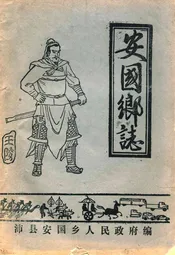 安國鄉誌
王陵
沛县安国乡人民政府编